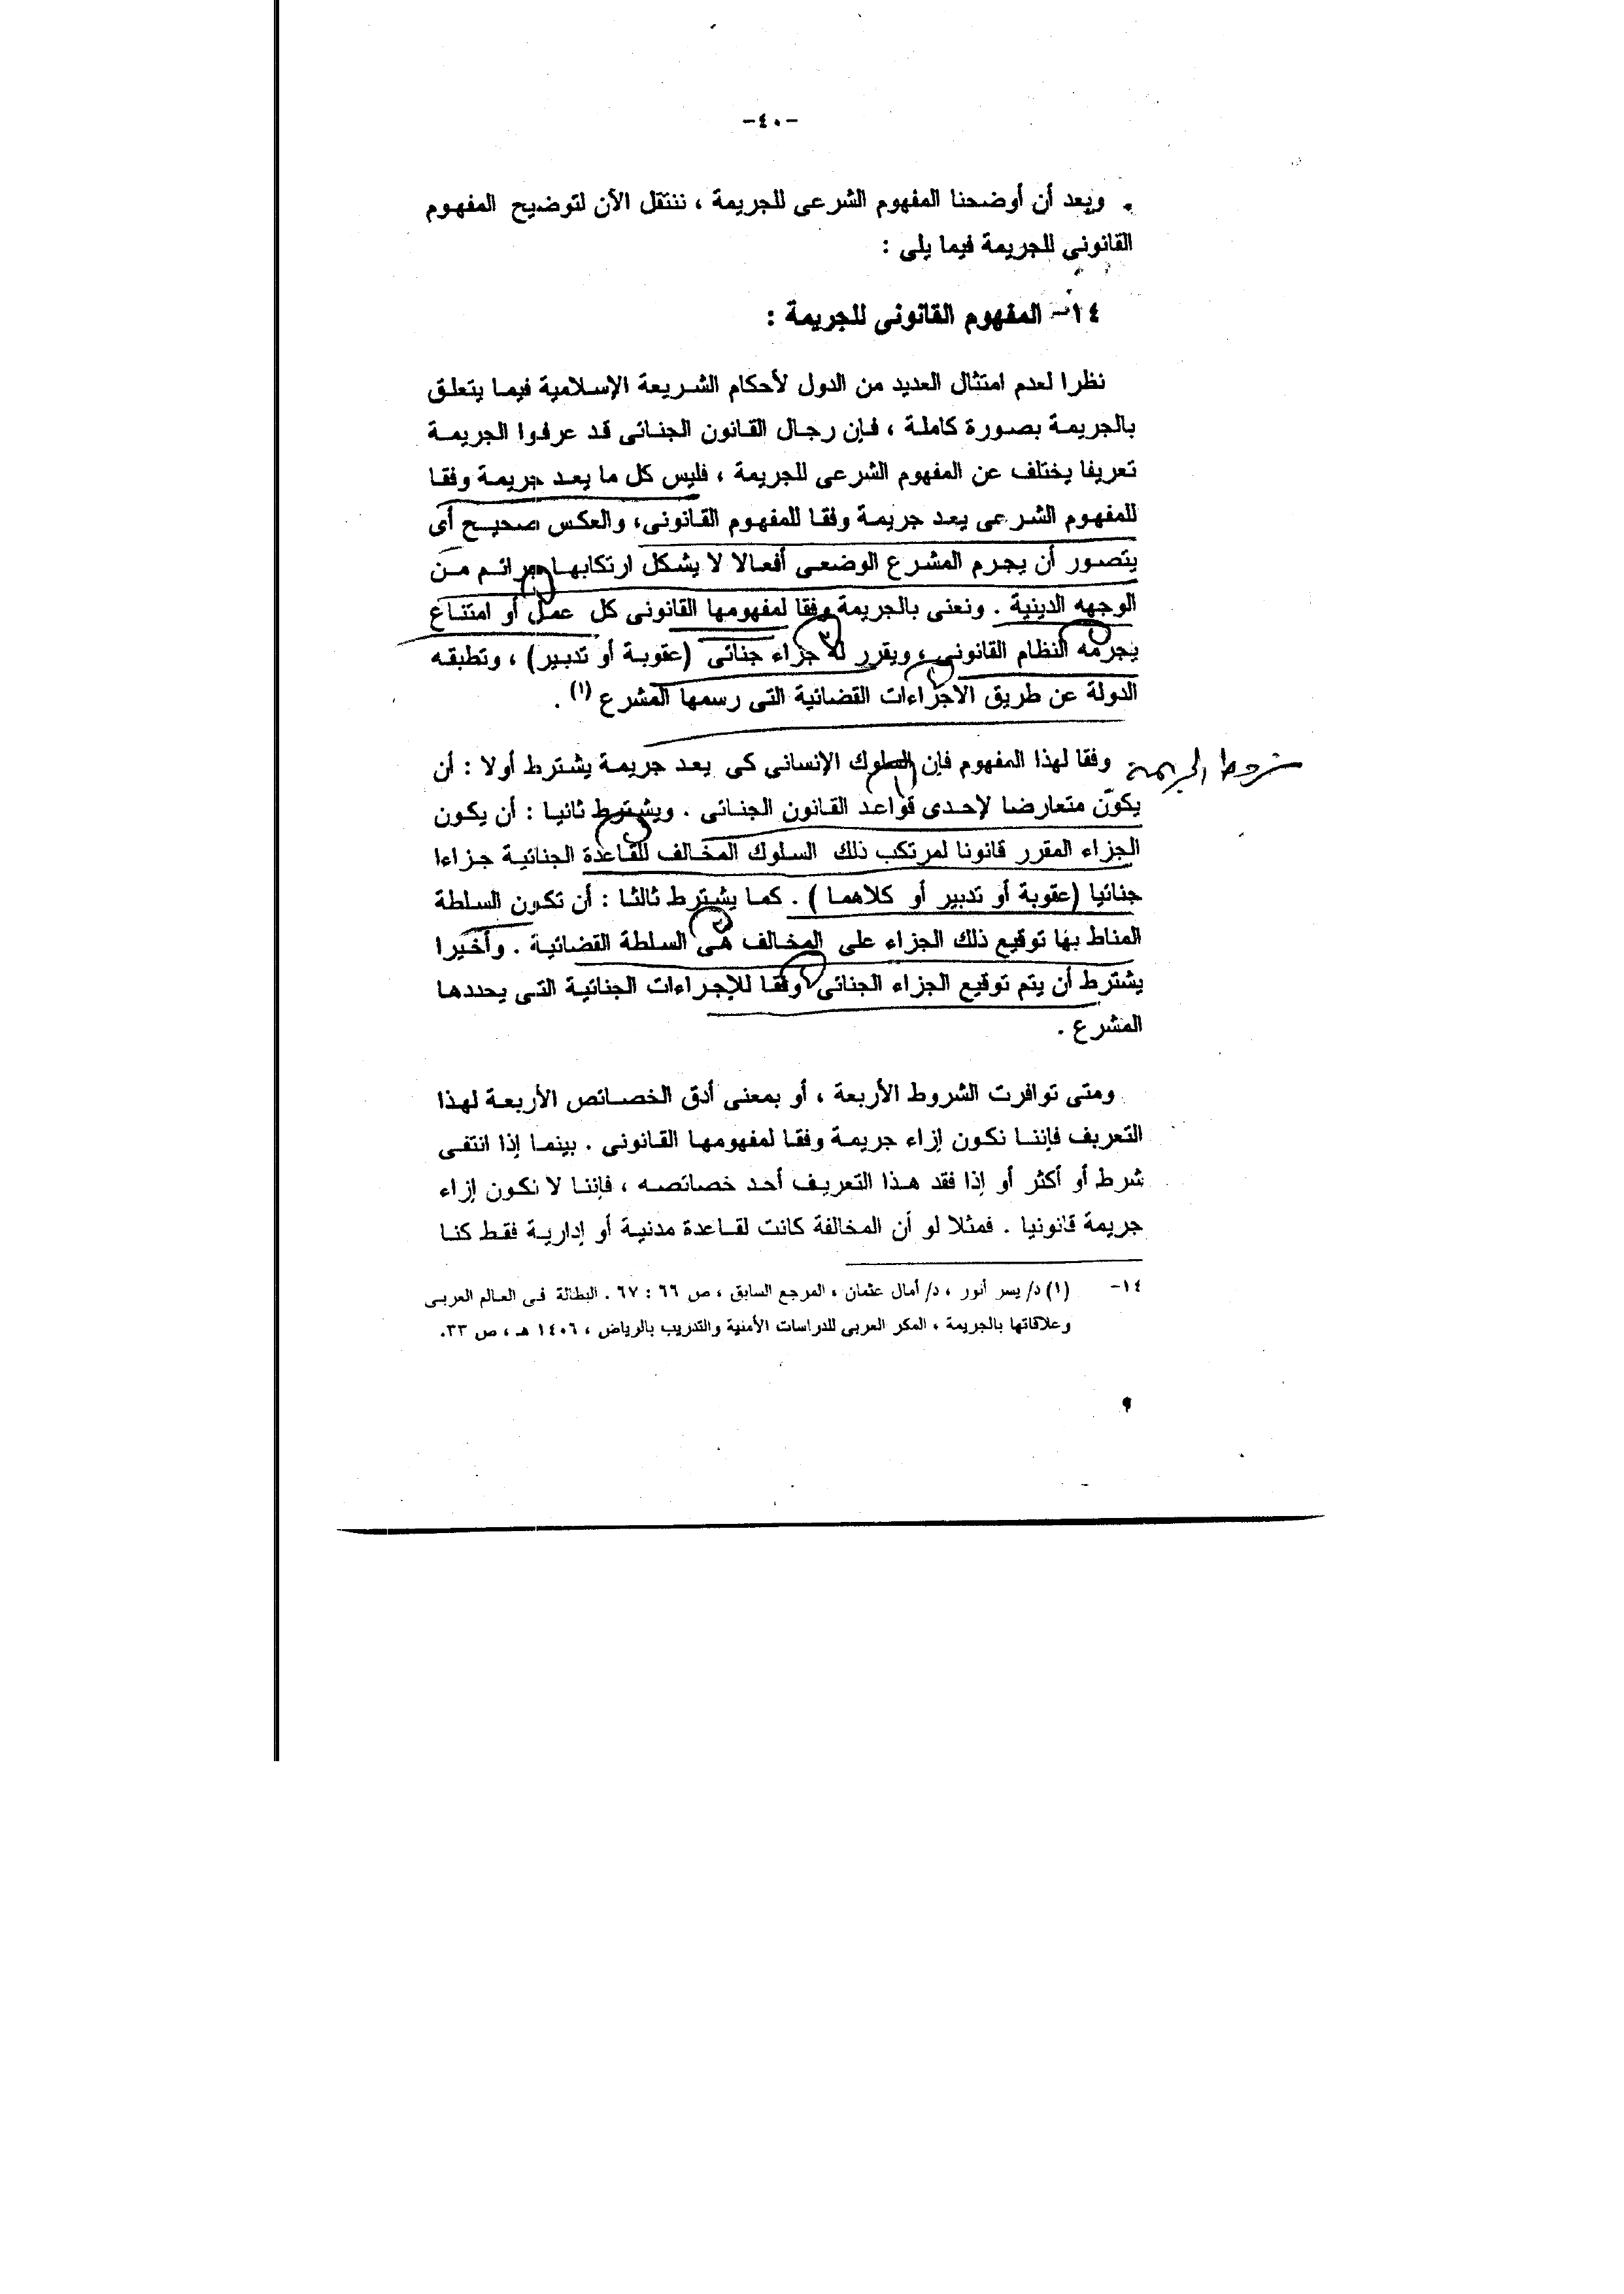 -٤٠-
وبعد أن أوضحنا المفهوم الشرعى للجريمة ، ننتقل الآن لتوضيح المفهوم
القانونى للجريمة فيما يلى :
١٤- المفهوم القانونى للجريمة :
نظرا لعدم امتثال العديد من الدول لأحكام الشريعة الإسلامية فيما يتعلق
بالجريمة بصورة كاملة ، فإن رجال القانون الجنائى قد عرفوا الجريمة
تعريفا يختلف عن المفهوم الشرعى للجريمة ، فليس كل ما يعد جريمة وفقا
للمفهوم الشرعى يعد جريمة وفقا للمفهوم القانونى، والعكس صحيح أى
يتصور أن يجرم المشرع الوضعى أفعالا لا يشكل ارتكابها جرائم من
الوجهه الدينية . ونعنى بالجريمة وفقا لمفهومها القانونى كل عمل أو امتناع
يجرمه النظام القانونى ، ويقرر له جزاء جنائى (عقوبة أو تدبير) ، وتطبقه
الدولة عن طريق الاجراءات القضائية التى رسمها المشرع (١) .
شروط الجريمة
وفقا لهذا المفهوم فإن السلوك الإنسانى كى يعد جريمة يشترط أولا : أن
يكون متعارضا لإحدى قواعد القانون الجنائى . ويشترط ثانيا : أن يكون
الجزاء المقرر قانونا لمرتكب ذلك السلوك المخالف للقاعدة الجنائية جزاءا
جنائيا (عقوبة أو تدبير أو كلاهما ) . كما يشترط ثالثا : أن تكون السلطة
المناط بها توقيع ذلك الجزاء على المخالف هى السلطة القضائية . وأخيرا
يشترط أن يتم توقيع الجزاء الجنائى وفقا للإجراءات الجنائية التى يحددها
المشرع .
ومتى توافرت الشروط الأربعة ، أو بمعنى أدق الخصائص الأربعة لهذا
التعريف فإننا نكون إزاء جريمة وفقا لمفهومها القانونى . بينما إذا انتفى
شرط أو أكثر أو إذا فقد هذا التعريف أحد خصائصه ، فإننا لا نكون إزاء
جريمة قانونيا . فمثلا لو أن المخالفة كانت لقاعدة مدنية أو إدارية فقط كنا
١٤- (١) د/ يسر أنور ، د/ أمال عثمان ، المرجع السابق ، ص ٦٦ : ٦٧ . البطالة فى العالم العربى
وعلاقاتها بالجريمة ، المكر العربى للدراسات الأمنية والتدريب بالرياض ، ١٤٠٦ هـ ، ص ٣٣.